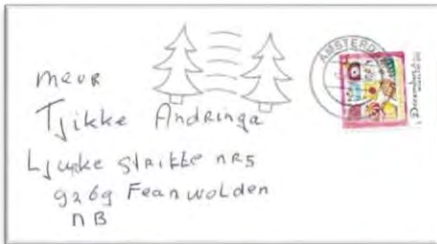 AMSTERDA
December
meur
Tjikke Andringa
Ljurke strikke nR5
9269 Feanwolden
NB